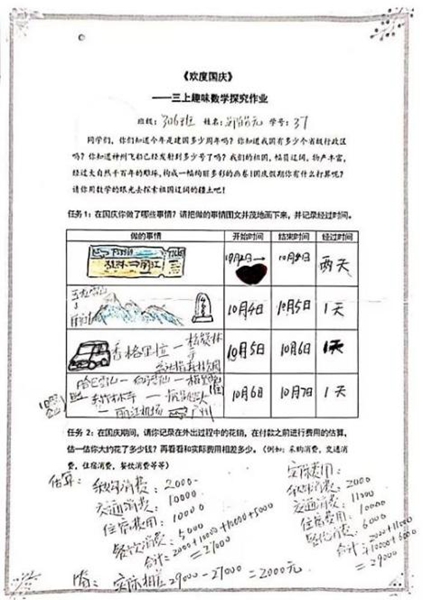 《欢度国庆》
——三上趣味数学探究作业
班级：306班 姓名： 学号：37
同学们，你们知道今年是建国多少周年吗？你知道我国有多少个省级行政区
吗？你知道神州飞船已经发射到多少号了吗？我们的祖国，幅员辽阔，物产丰富，
经过大自然千百年的雕琢，构成一幅绚丽多彩的画卷！国庆假期你有什么打算呢？
请你用数学的眼光去探索祖国辽阔的疆土吧！
任务1：在国庆你做了哪些事情？请把做的事情图文并茂地画下来，并记录经过时间。
做的事情 开始时间 结束时间 经过时间
丽江 10月 两天
10月4日 10月5日 1天
香格里拉— 10月5日 10月6日 1天
丽江机场 广州 10月6日 10月7日 1天
任务2：在国庆期间，请你记录在外出过程中的花销，在付款之前进行费用的估算，
估一估你大约花了多少钱？再看看和实际费用相差多少。（例如：采购消费，交通消
费，住宿消费，餐饮消费等等）
估算：采购消费：2000
交通消费：10000
住宿费用：10000
餐饮消费：5000
合计：2000+10000+10000+5000
=27000
实际费用：
采购消费：2000
交通消费：11000
住宿费用：10000
餐饮消费：6000
合计：2000+11000
+10000+6000
=29000
答：实际相差29000-27000=2000元